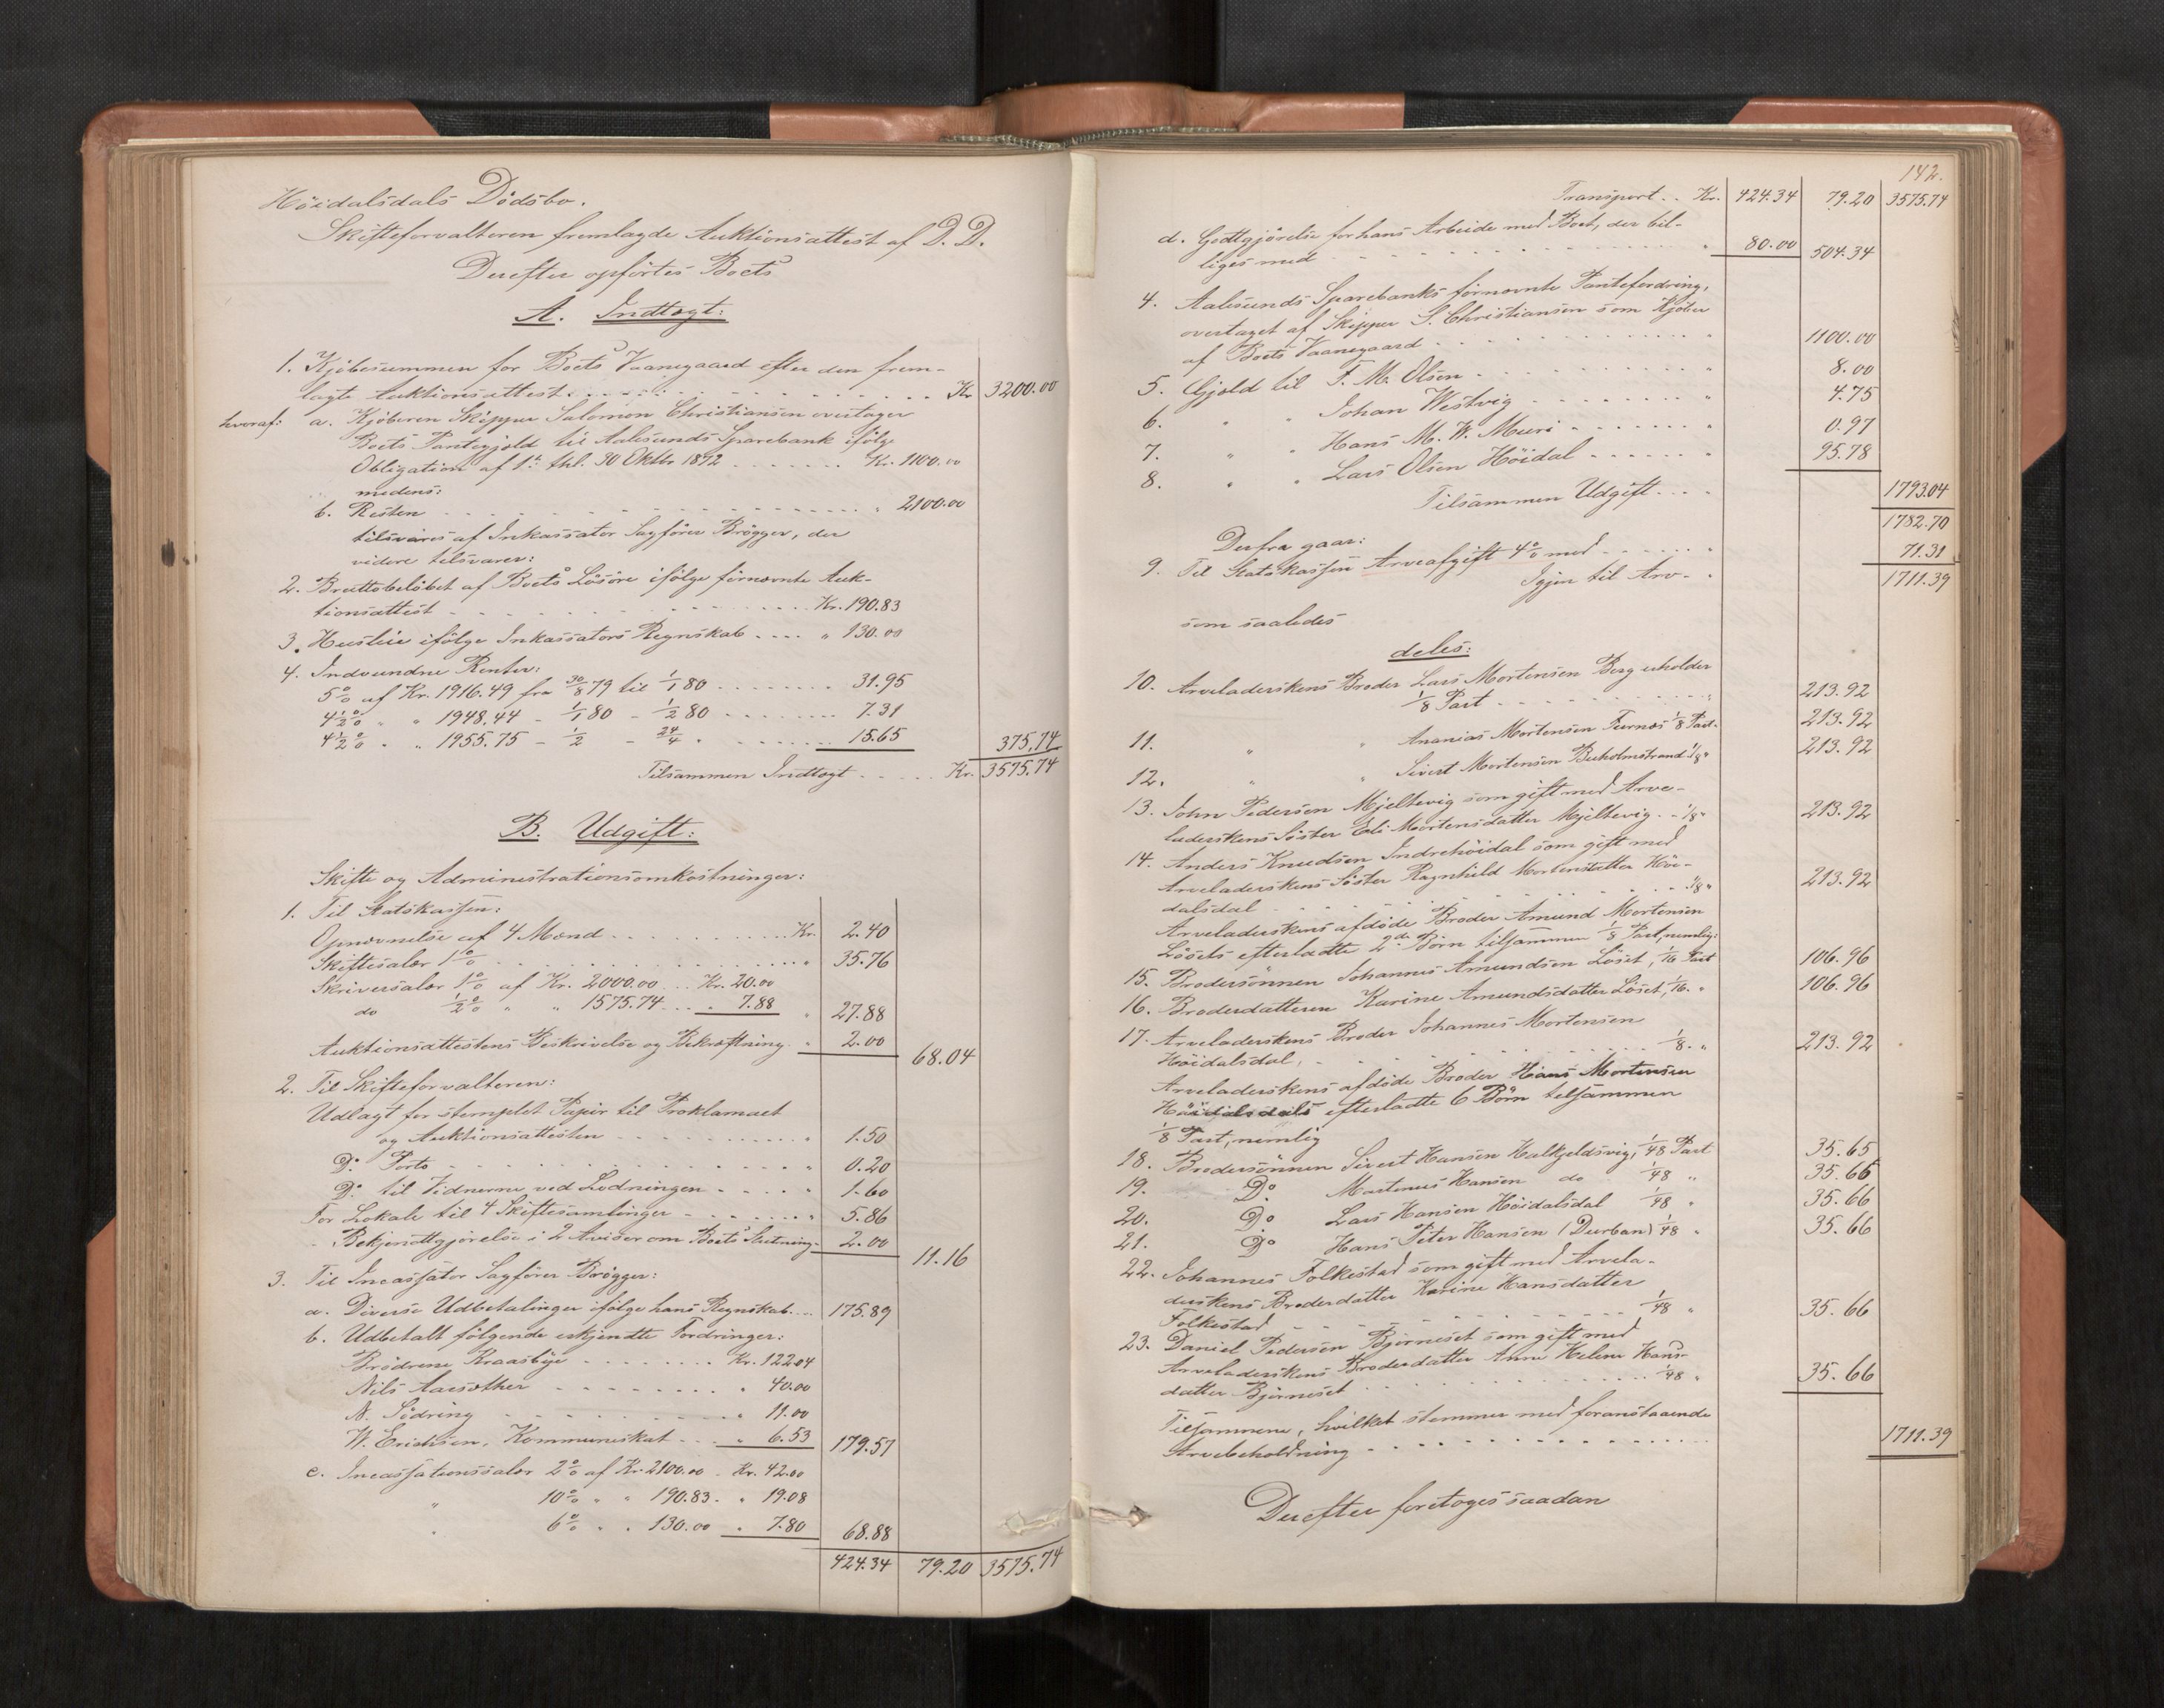 Höidalsdals Dödsbo.
Skifteforvalteren fremlagde Auktionsattest af D. D.
Derefter opförtes Boets
A. Indtægt:
1. Kjöbesummen for Boets Vaanegaard efter den frem-
lagte Auktionsattest . . . . Kr. 3200.00
hvoraf: a. Kjöberen Skipper Salomon Christiansen overtager
Boets Pantegjeld til Aalesunds Sparebank ifölge
Obligation af 1ste thl. 30 Oktbr 1872 . . . . Kr. 1100.00
medens:
b. Resten . . . . " 2100.00
tilsvares af Inkassator Sagförer Brögger, der
videre tilsvarer:
2. Bruttobelöbet af Boets Lösöre ifölge förnævnte Auk-
tionsattest . . . . Kr. 190.83
3. Husleie ifölge Inkassators Regnskab . . . . " 130.00
4. Indvundne Renter:
5 % af Kr. 1916.49 fra 30/8 79 til 1/1 80 . . . . 31.95
4 1/2 % " " 1948.44 - 1/1 80 - 1/2 80 . . . . 7.31
4 1/2 % " " 1955.75 - 1/2 - 24/4 " . . . . 15.65 375.74
Tilsammen Indtægt . . . . Kr. 3575.74
B. Udgift:
Skifte og Administrationsomkostninger:
1. Til Statskassen:
Opnævnelse af 4 Mænd . . . . Kr. 2.40
Skiftesalær 1 % . . . . " 35.76
Skriversalær 1 % af Kr. 2000.00 . . Kr. 20.00
do 1/2 % " " 1575.74 . . " 7.88 " 27.88
Auktionsattestens Beskrivelse og Bekræftning " 2.00 68.04
2. Til Skifteforvalteren:
Udlagt for stemplet Papir til Proklamaet
og Auktionsattesten . . . . " 1.50
Do Porto . . . . " 0.20
Do til Vidnerne ved Lodningen . . . . " 1.60
For Lokale til 4 Skiftesamlinger . . . . " 5.86
" Bekjendtgjörelse i 2 Aviser om Boets Slutning " 2.00 11.16
3. Til Incassator Sagförer Brögger:
a. Diverse Udbetalinger ifölge hans Regnskab . . . 175.89
b. Udbetalt fölgende erkjendte Fordringer:
Brödrene Kraasbye . . . . Kr. 122.04
Nils Aarsæther . . . . " 40.00
N. Södring . . . . " 11.00
W. Erichsen, Kommuneskat . . . " 6.53 179.57
c. Incassationssalær 2 % af Kr. 2100.00 . Kr. 42.00
" 10 % " " 190.83 . " 19.08
" 6 % " " 130.00 " 7.80 68.88
424.34 79.20 3575.74
142.
Transport . . Kr. 424.34 79.20 3575.74
d. Godtgjörelse for hans Arbeide med Boet, der bil-
liges med . . . . " 80.00 504.34
4. Aalesunds Sparebanks förnævnte Pantefordring,
overtaget af Skipper S. Christiansen som Kjöber
af Boets Vaanegaard . . . . " 1100.00
5. Gjeld til F. M. Olsen . . . . " 8.00
6. " " Johan Westvig . . . . " 4.75
7. " " Hans M. W. Muri . . . . " 0.97
8. " " Lars Olsen Höidal . . . . " 95.78
Tilsammen Udgift . . . . 1793.04
1782.70
Derfra gaar:
9. Til Statskassen Arveafgift 4 % med . . . . " 71.31
Igjen til Arv . . 1711.39
som saaledes
deles:
10. Arveladerskens Broder Lars Mortensen Berg erholder
1/8 Part . . . . 213.92
11. " " Ananias Mortensen Furnes 1/8 Part. 213.92
12. " " Sivert Mortensen Buholmstrand 1/8 " 213.92
13. John Pedersen Mjeltevig som gift med Arve-
laderskens Söster Eli Mortensdatter Mjeltevig . . 1/8 " 213.92
14. Anders Knudsen Indrehöidal som gift med
Arveladerskens Söster Ragnhild Mortensdatter Höi-
dalsdal . . . . 1/8 " 213.92
Arveladerskens afdöde Broder Amund Mortensen
Lösets efterladte 2de Börn tilsammen 1/8 Part, nemlig:
15. Brodersönnen Johannes Amundsen Löset, 1/16 Part 106.96
16. Broderdatteren Karine Amundsdatter Löset, 1/16. " 106.96
17. Arveladerskens Broder Johannes Mortensen
Höidalsdal, . . . . 1/8. " 213.92
Arveladerskens afdöde Broder Hans Mortensen
Höidalsdals efterladte 6 Börn tilsammen
1/8 Part, nemlig
18. Brodersönnen Sivert Hansen Halkjeldsvig, 1/48 Part 35.65
19. Do Martenus Hansen do 1/48 " 35.66
20. Do Lars Hansen Höidalsdal 1/48 " 35.66
21. Do Hans Peter Hansen (Durban) 1/48 " 35.66
22. Johannes Folkestad som gift med Arvela-
derskens Broderdatter Karine Hansdatter
Folkestad . . . . 1/48 " 35.66
23. Daniel Pedersen Björneset som gift med
Arveladerskens Broderdatter Anne Helene Hans-
datter Björneset . . . . 1/48 " 35.66
Tilsammen, hvilket stemmer med foranstaaende
Arvebeholdning . . . . 1711.39
Derefter foretoges saadan